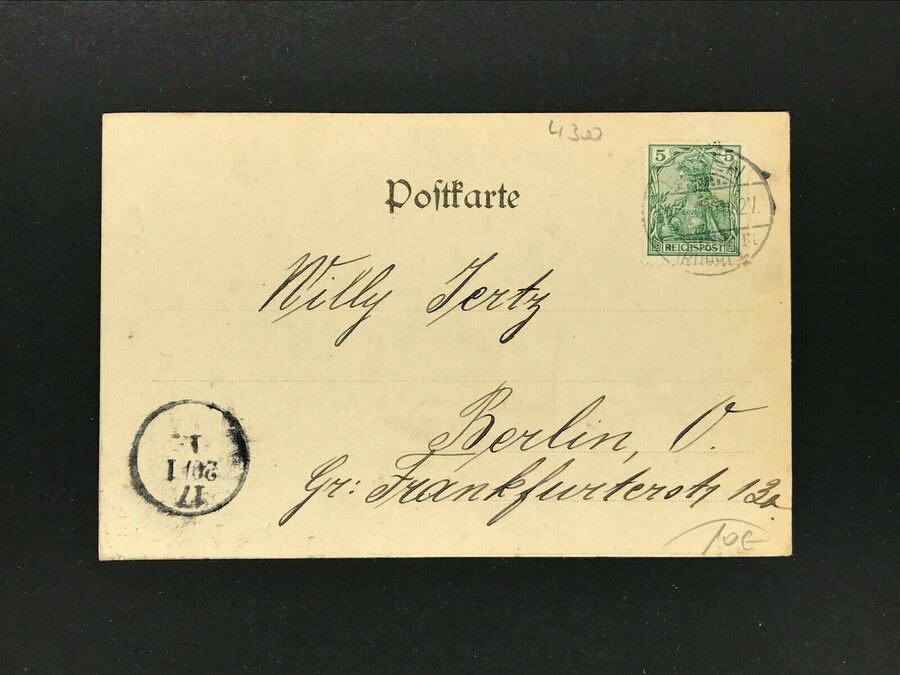 4300
5 5
Postkarte
REICHSPOST
Willy Jertz
Berlin, O.
Gr: Frankfurterstr 13a
10€